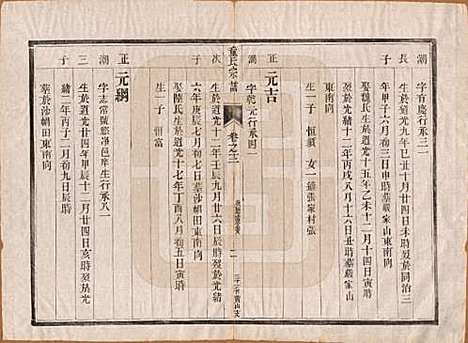 潮 字百慶行承三一
長 生於道光九年己丑 月廿四日 時歿於同治三
子 年甲子六月初三日申時墓嚴家山東南向
娶魏氏生於道光十五年乙未十二月十四日 時
歿於光緒十二年丙戌八月十六日寅時墓嚴家山
東南向
生一子 恒鎖 女一適張家村張
正 元吉
潮 字乾元行承四一
童氏宗譜 卷之三
次 生於道光十二年壬辰九月廿六日辰時歿於光緒
子 六年庚辰七月初 日辰時墓於沙帽田東南向
娶陸氏生於道光十七年丁酉八月初五日寅時
生一子 恒富
正 元綱
潮 字志常號悠 邑庠生行承八一
三 生於道光廿四年甲辰十二月廿四日亥時歿於光
子 緒二年丙子二月初九日辰時
墓於沙帽田東南向